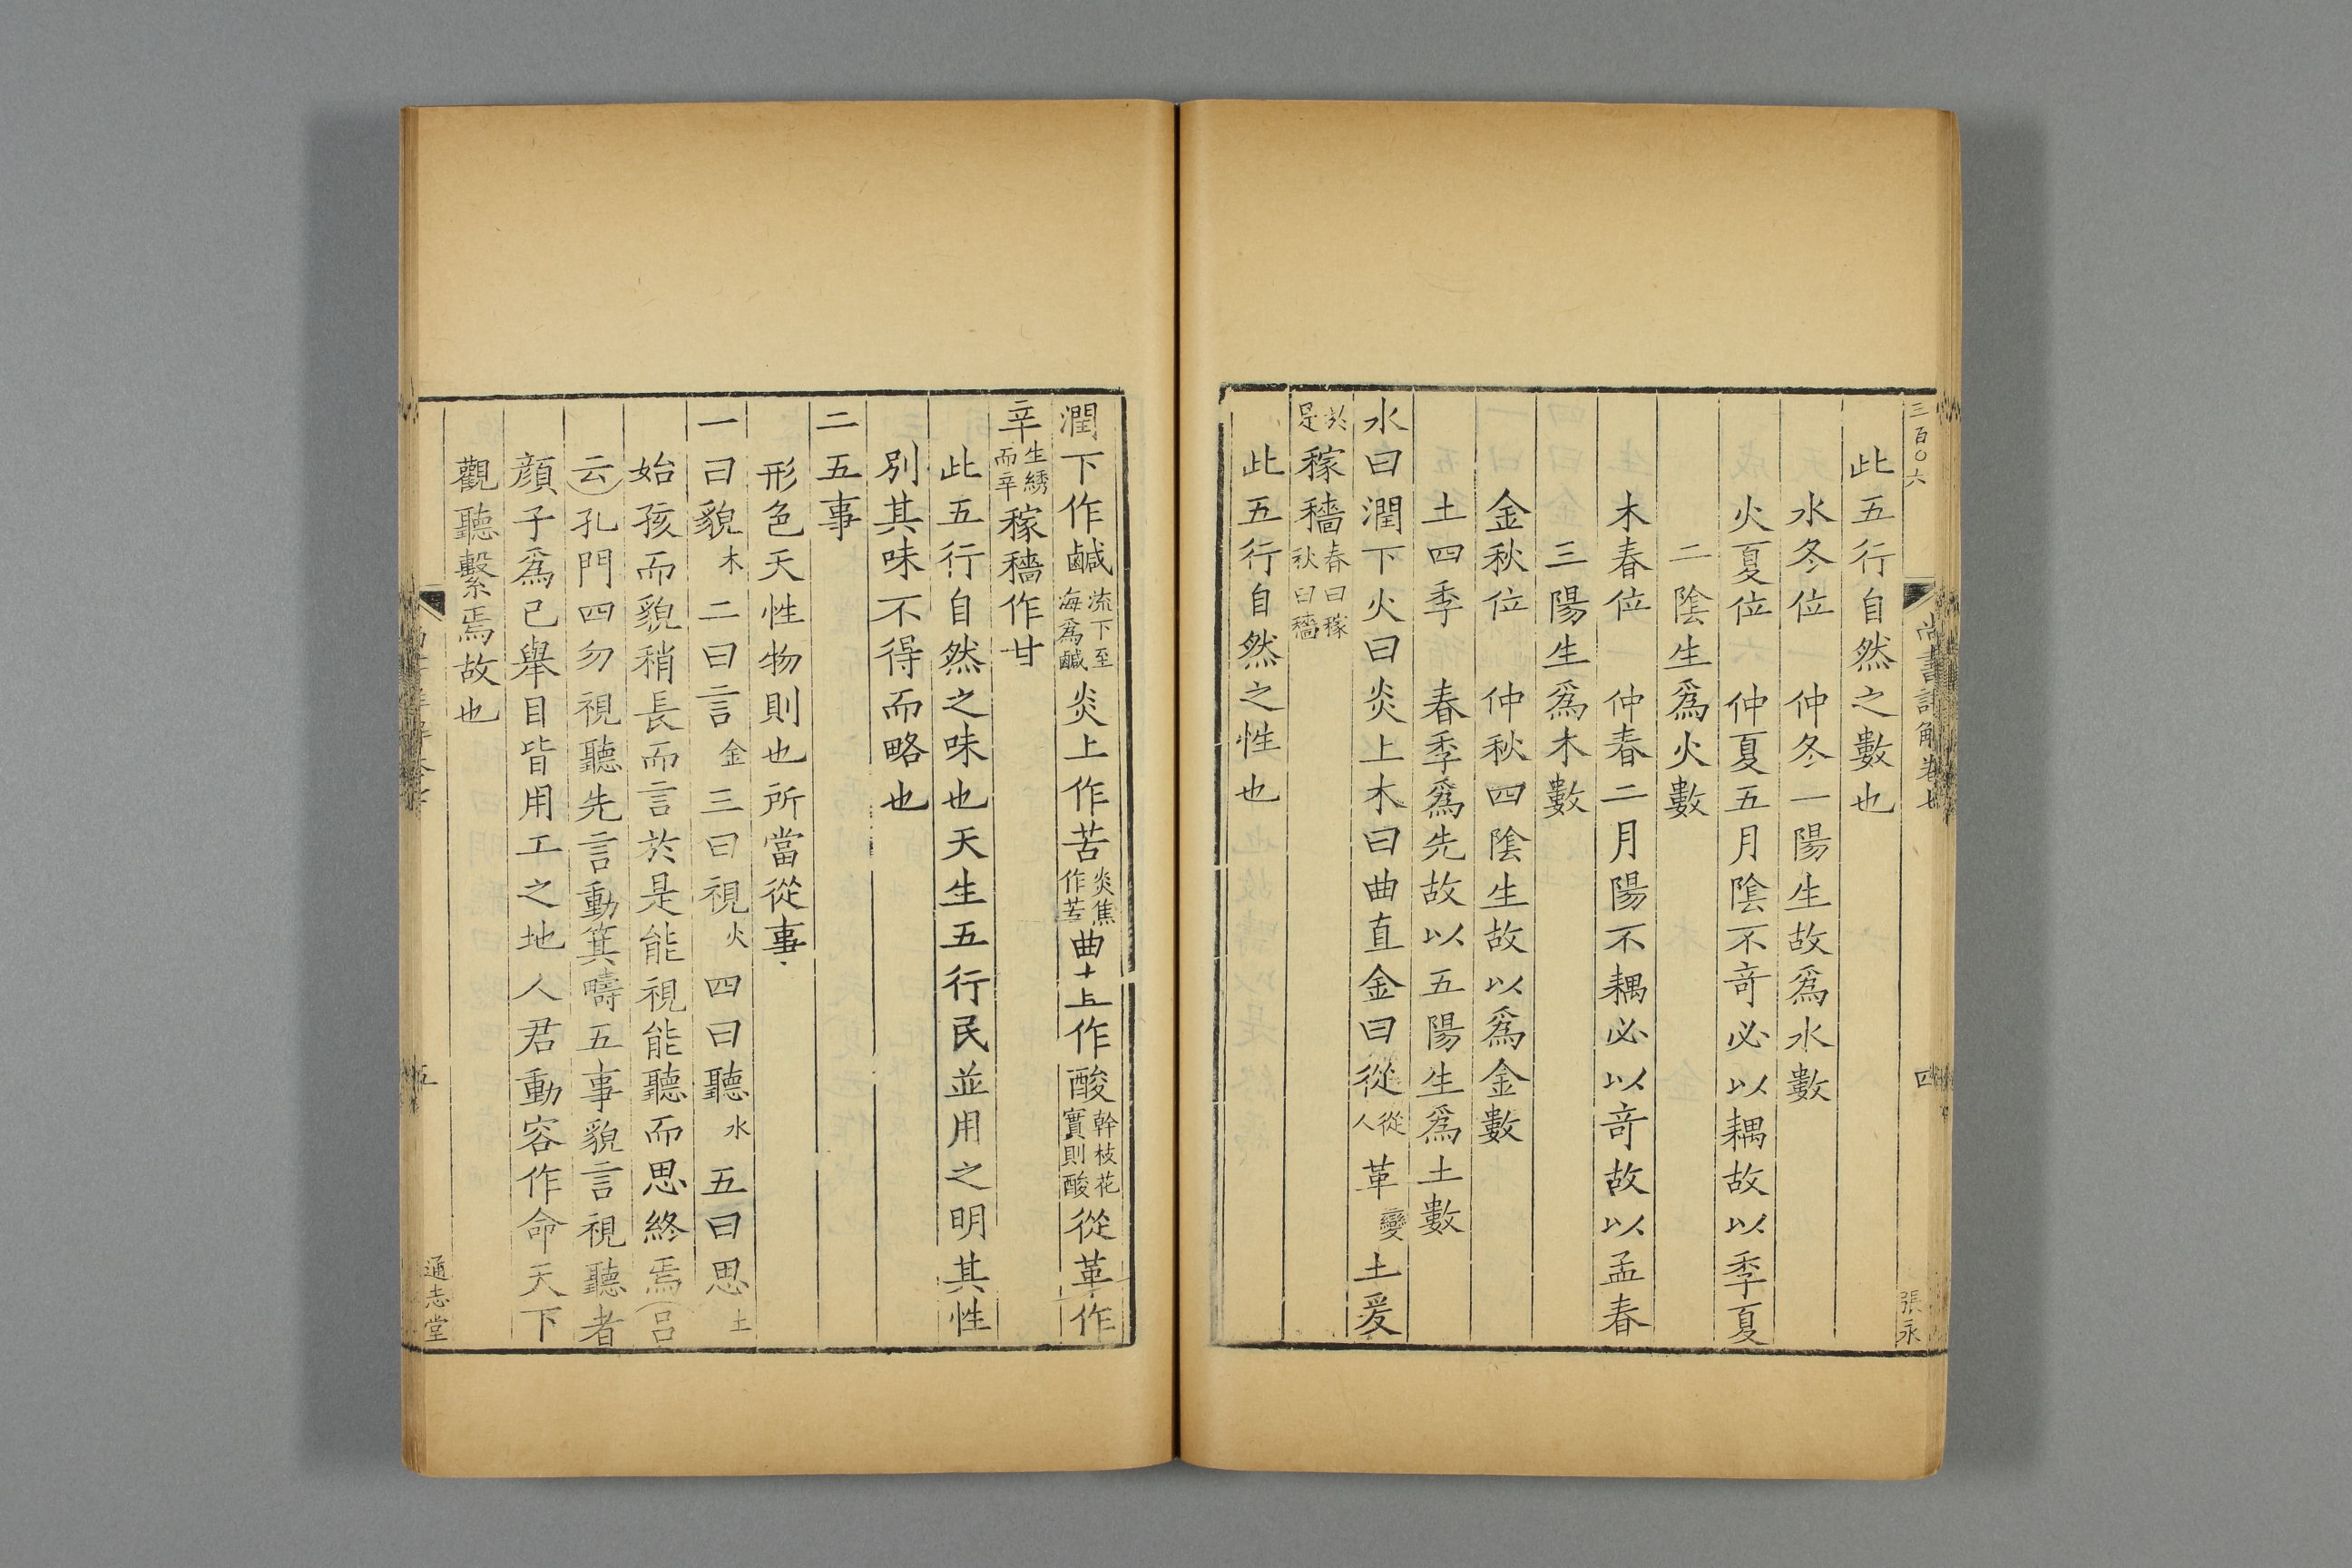 三百〇六
尚書詳解卷七 四 張永
此五行自然之數也
水冬位 仲冬一陽生故爲水數
火夏位 仲夏五月陰不奇必以耦故以季夏
二陰生爲火數
木春位 仲春二月陽不耦必以奇故以孟春
三陽生爲木數
金秋位 仲秋四陰生故以爲金數
土四季 春季爲先故以五陽生爲土數
水曰潤下火曰炎上木曰曲直金曰從從人革變土爰
於是稼穡春曰稼秋曰穡
此五行自然之性也
潤下作鹹流下至海爲鹹炎上作苦炎焦作苦曲直作酸幹枝花實則酸從革作
辛生綉而辛稼穡作甘
此五行自然之味也天生五行民並用之明其性
別其味不得而略也
二五事
形色天性物則也所當從事
一曰貌木二曰言金三曰視火四曰聽水五曰思土
始孩而貌稍長而言於是能視能聽而思終焉呂
云孔門四勿視聽先言動箕疇五事貌言視聽者
顔子爲己舉目皆用工之地人君動容作命天下
觀聽繫焉故也
五 通志堂